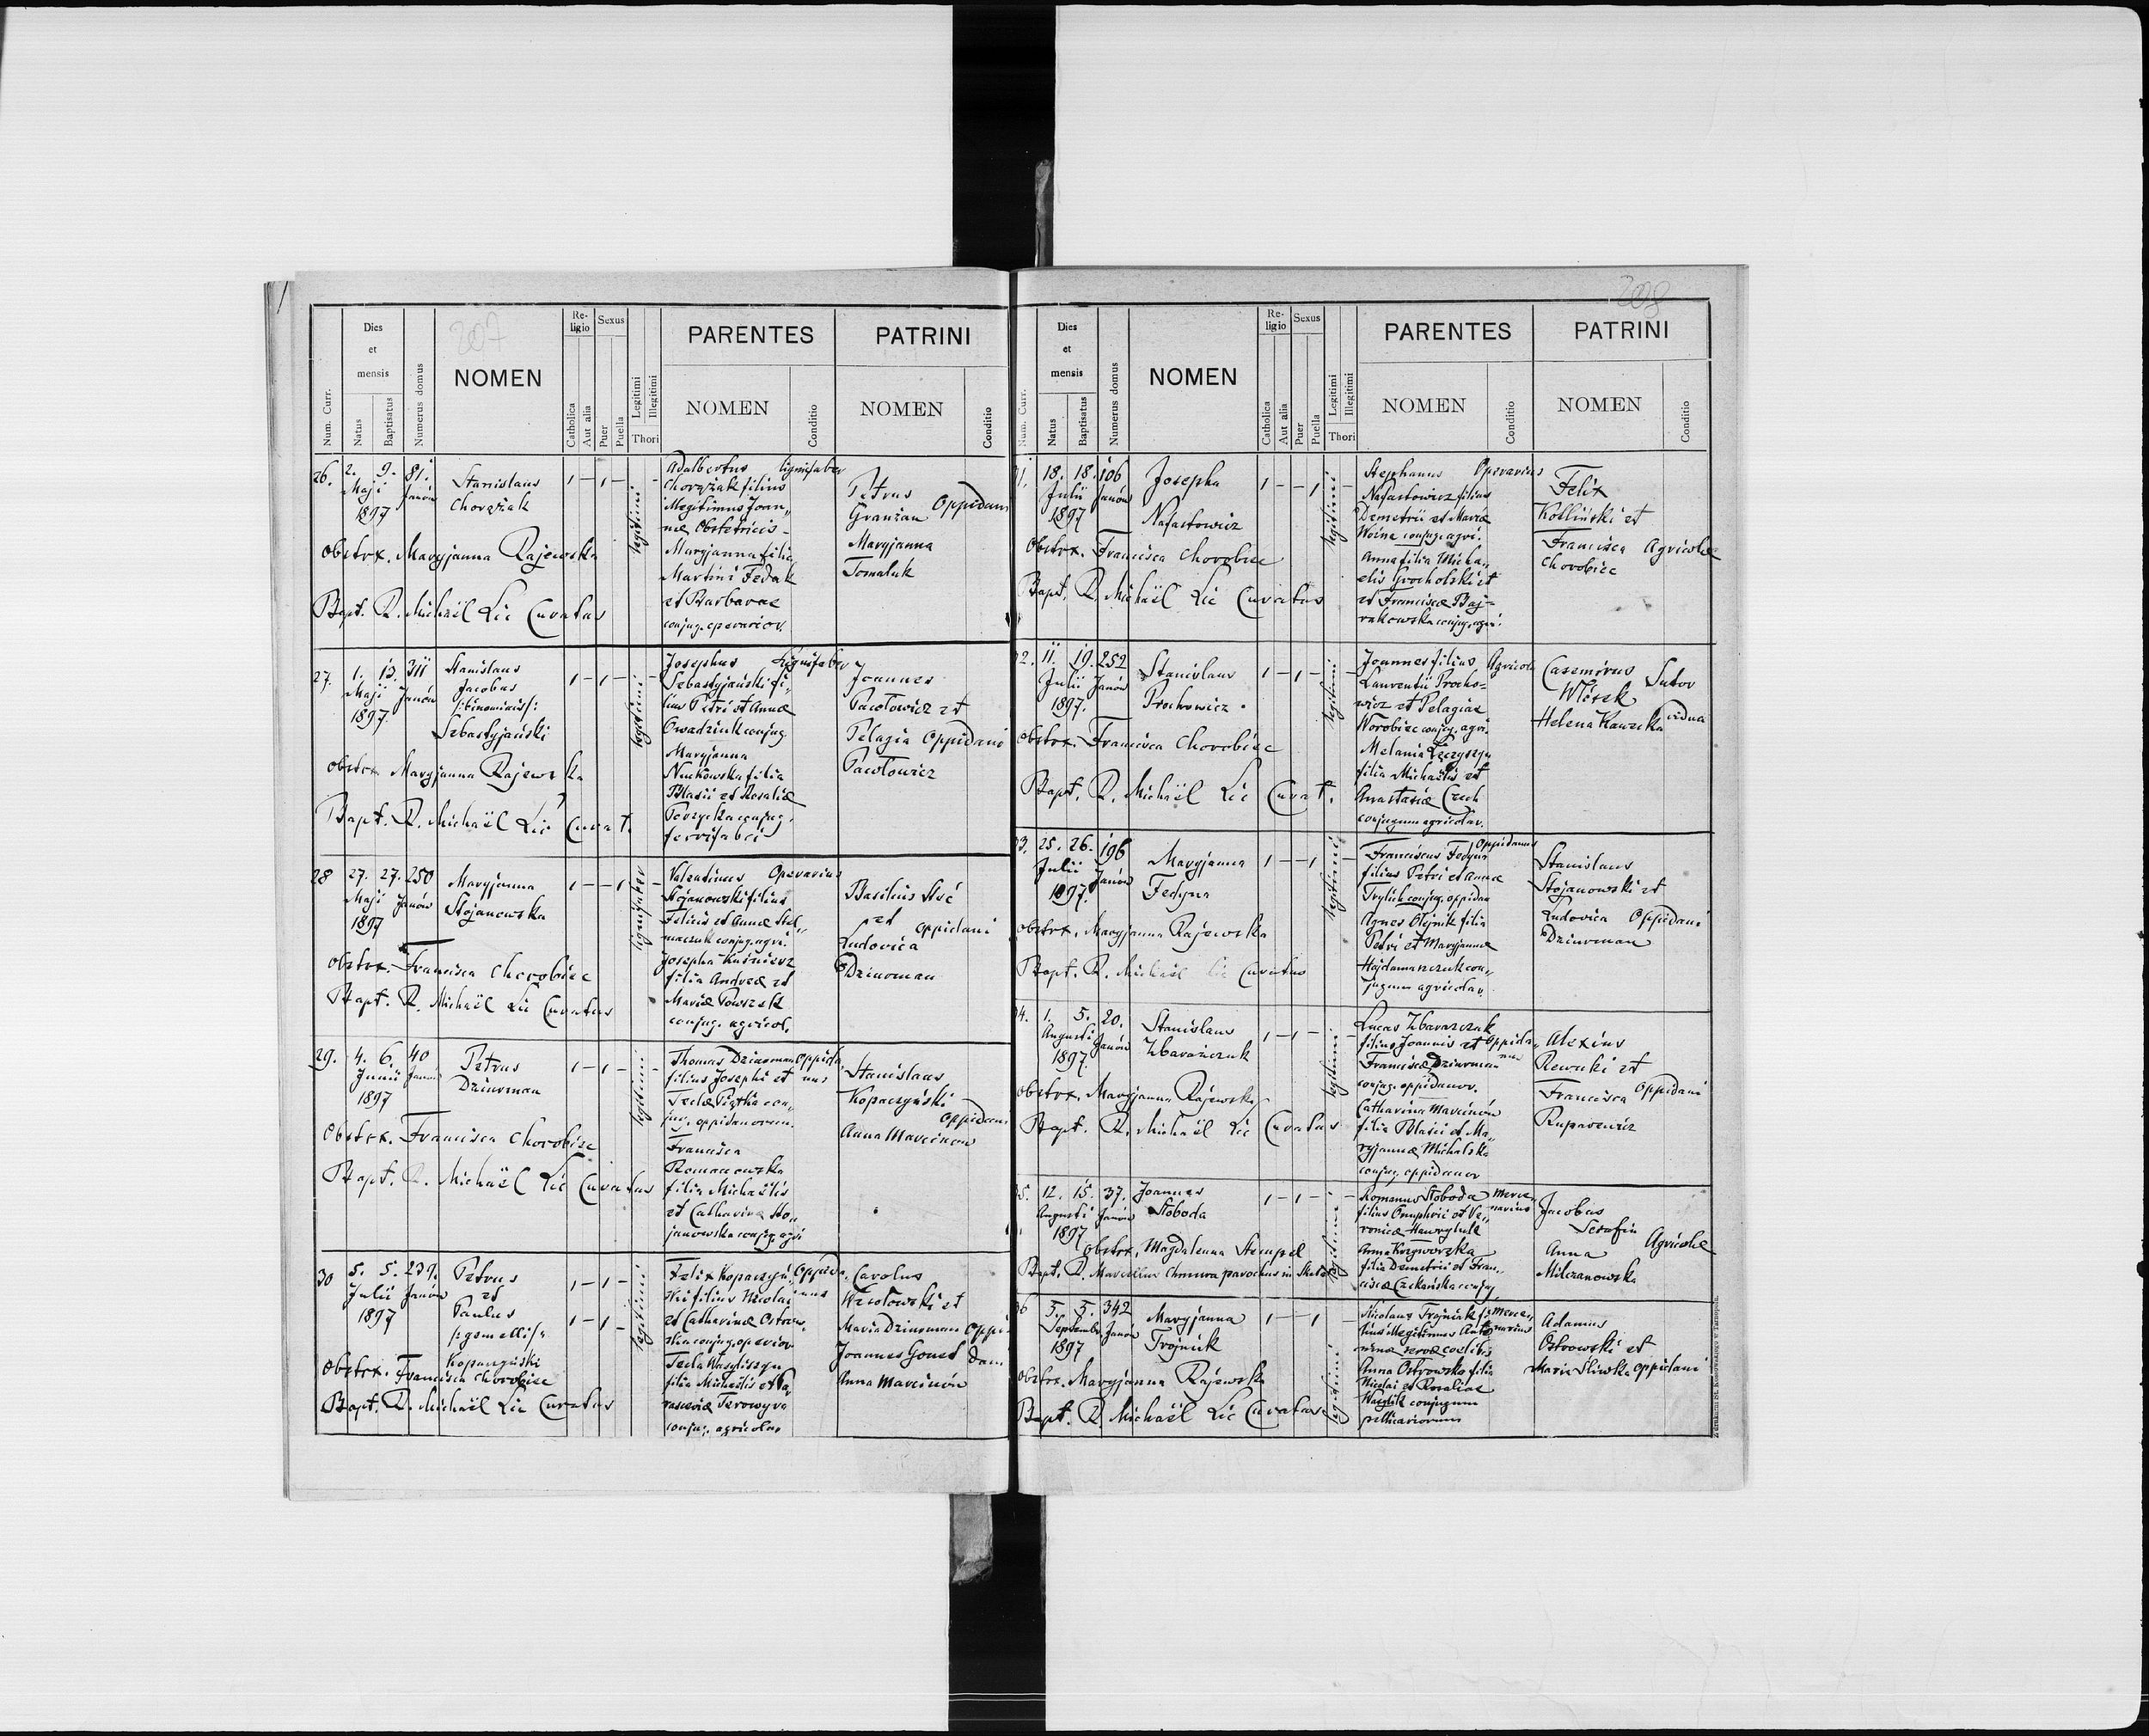 207
Num. Curr.
Dies et mensis
Natus
Baptisatus
Numerus domus
NOMEN
Religio
Catholica
Aut alia
Sexus
Puer
Puella
Legitimi
Illegitimi
Thori
PARENTES
NOMEN
Conditio
PATRINI
NOMEN
Conditio
26. 2. 9. 81.
Maji Janów
1897
Stanislaus
Chorążak
1 – 1 –
legitimi
Adalbertus lignifaber
Chorążak filius
illegitimus Joan„
nae Obstetricis –
Maryjanna filia
Martini Fedak
et Barbarae
conjug. operarior.
Petrus
Granżan Oppidani
Maryjanna
Tomaluk
Obstrx. Maryjanna Rajewska
Bapt. R. Michaël Lic Curatus
27. 1. 13. 311
Maji Janów
1897.
Stanislaus
Jacobus
/:binominis/:
Sebastyjański
1 – 1 –
legitimi
Josephus Lignifaber
Sebastyjański fi„
lius Petri et Annae
Owadziuk conjug.
Maryjanna
Nuckowska filia
Blasii et Rosaliae
conjug.
ferrifabri
Joannes
Pacłowicz et
Pelagia Oppidani
Pacłowicz
obstrx Maryjanna Rajewska
Bapt. R. Michaël Lic Curat.
28 27. 27. 250
Maji Janów
1897
Maryjanna
Stojanowska
1 – – 1
lignifaber
Valentinus Operarius
Stojanowski filius
Felicis et Annae Stel„
maczuk conjug. agri.
Josepha Kuśnierz
filia Andreae et
Mariae
conjug. agricol.
Basilius
et oppidani
Ludovica
Dziurman
Obstrx. Francisca Chorobiec
Bapt. R. Michaël Lic Curatus
29. 4. 6. 40
Junii Janów
1897
Petrus
Dziurman
1 – 1 –
legitimi
Thomas Dziurman Oppida„
filius Josephi et nus
Teclae Piątka con„
jug. oppidanorum.
Francisca
Romanowska
filia Michaëlis
et Catharinae Sto„
janowska conjug. agri
Stanislaus
Kopaczyński
Oppidani
Anna Marcinow
Obstrx. Francisca Chorobiec
Bapt. R. Michaël Lic Curatus
30 5. 5. 239.
Julii Janów
1897
Petrus
et
Paulus
/:gemelli/:
Kopaczyński
1 – 1 –
1 – 1 –
legitimi
Felix Kopaczyń„ Oppida„
ski filius Nicolai nus
et Catharinae Ostrow„
ska conjug. operior
Tecla Wasyliszyn
filia Michaëlis et Pa„
rasceviae
conjug. agricolar
Carolus
Wesołowski et
Maria Dziurman Oppi„
Joannes dani
Anna Marcinów
Obstrx. Francisca Chorobiec
Bapt. R. Michaël Lic Curatus
208
Num. Curr.
Dies et mensis
Natus
Baptisatus
Numerus domus
NOMEN
Religio
Catholica
Aut alia
Sexus
Puer
Puella
Legitimi
Illegitimi
Thori
PARENTES
NOMEN
Conditio
PATRINI
NOMEN
Conditio
1. 18. 18. 106
Julii Janów
1897
Josepha
Nafastowicz
1 – – 1
legitimi
Stephanus Operarius
Nafastowicz filius
Demetrii et Mariae
Woina conjug. agri.
Anna filia Micha„
elis Grocholski et
et Francisca Baj=
rakowska conjug. agri.
Felix
Kotliński et
Francisca Agricolae
Chorobiec
Obstrx. Francisca Chorobiec
Bapt. R. Michaël Lic Curatus
2. 11. 19. 252
Julii Janów
1897.
Stanislaus
Prochowicz
1 – 1 –
legitimi
Joannes filius Agricola
Laurentii Procho=
wicz et Pelagiae
Worobiec conjug. agri.
Melania
filia Michaëlis et
Anastasiae Czech
conjugum agricolar.
Casemirus Sutor
Włosek
Helena Kawecka vidua
obstrx. Francisca Chorobiec
Bapt. R. Michaël Lic Curat.
3. 25. 26. 196
Julii Janów
1897.
Maryjanna
Fedyna
1 – – 1
legitimi
Franciscus Fedyna Oppidanus
filius Petri et Annae
Trylich conjug. oppidan
Agnes Olejnik filia
Petri et Maryjannae
Hajdamaszczuk con„
jugum agricolar.
Stanislaus
Stojanowski et
Ludovica Oppidani
Dziurman
obstrx. Maryjanna Rajewska
Bapt. R. Michaël Lic Curatus
4. 1. 5. 20.
Augusti Janów
1897.
Stanislaus
Zbarażczuk
1 – 1 –
legitimi
Lucas Zbarazczuk
filius Joannis et Oppida„
Franciscae Dziurman nus
conjug. oppidanor.
Catharina Marcinów
filia Blasii et Ma„
ryjannae Michalska
conjug. oppidanor
Alexius
Rewucki et
Francisca Oppidani
Ruparowicz
obstrx. Maryjanna Rajewska
Bapt. R. Michaël Lic Curatus
5. 12. 15. 37.
Augusti Janów
1897
Joannes
Słoboda
1 – 1 –
legitimi
Romanus Słoboda merce„
filius Onuphrii et Ve„ narius
ronicae Hawryluk
Anna Krzyworzka
filia Demetrii et Fran„
ciscae Czekańska conjug.
Jacobus
Serafin
Agricolae
Anna
Milczanowska
obstrx. Magdalenna Stempel
Bapt. R. Marcellin Chmura parochus in
6 5. 5. 342
Septembr Janów
1897
Maryjanna
Trojniuk
1 – – 1
legitimi
Nicolaus Trojniuk fi„ merce„
lius illegitimus Anto„ narius
ninae servae coelibis
Anna Ostrowska filia
Nicolai et Rosaliae
Wasylik conjugum
pellicariorum
Adamus
Ostrowski et
Maria Śliwska oppidani
obstrx. Maryjanna Rajewska
Bapt. R. Michaël Lic Curatus